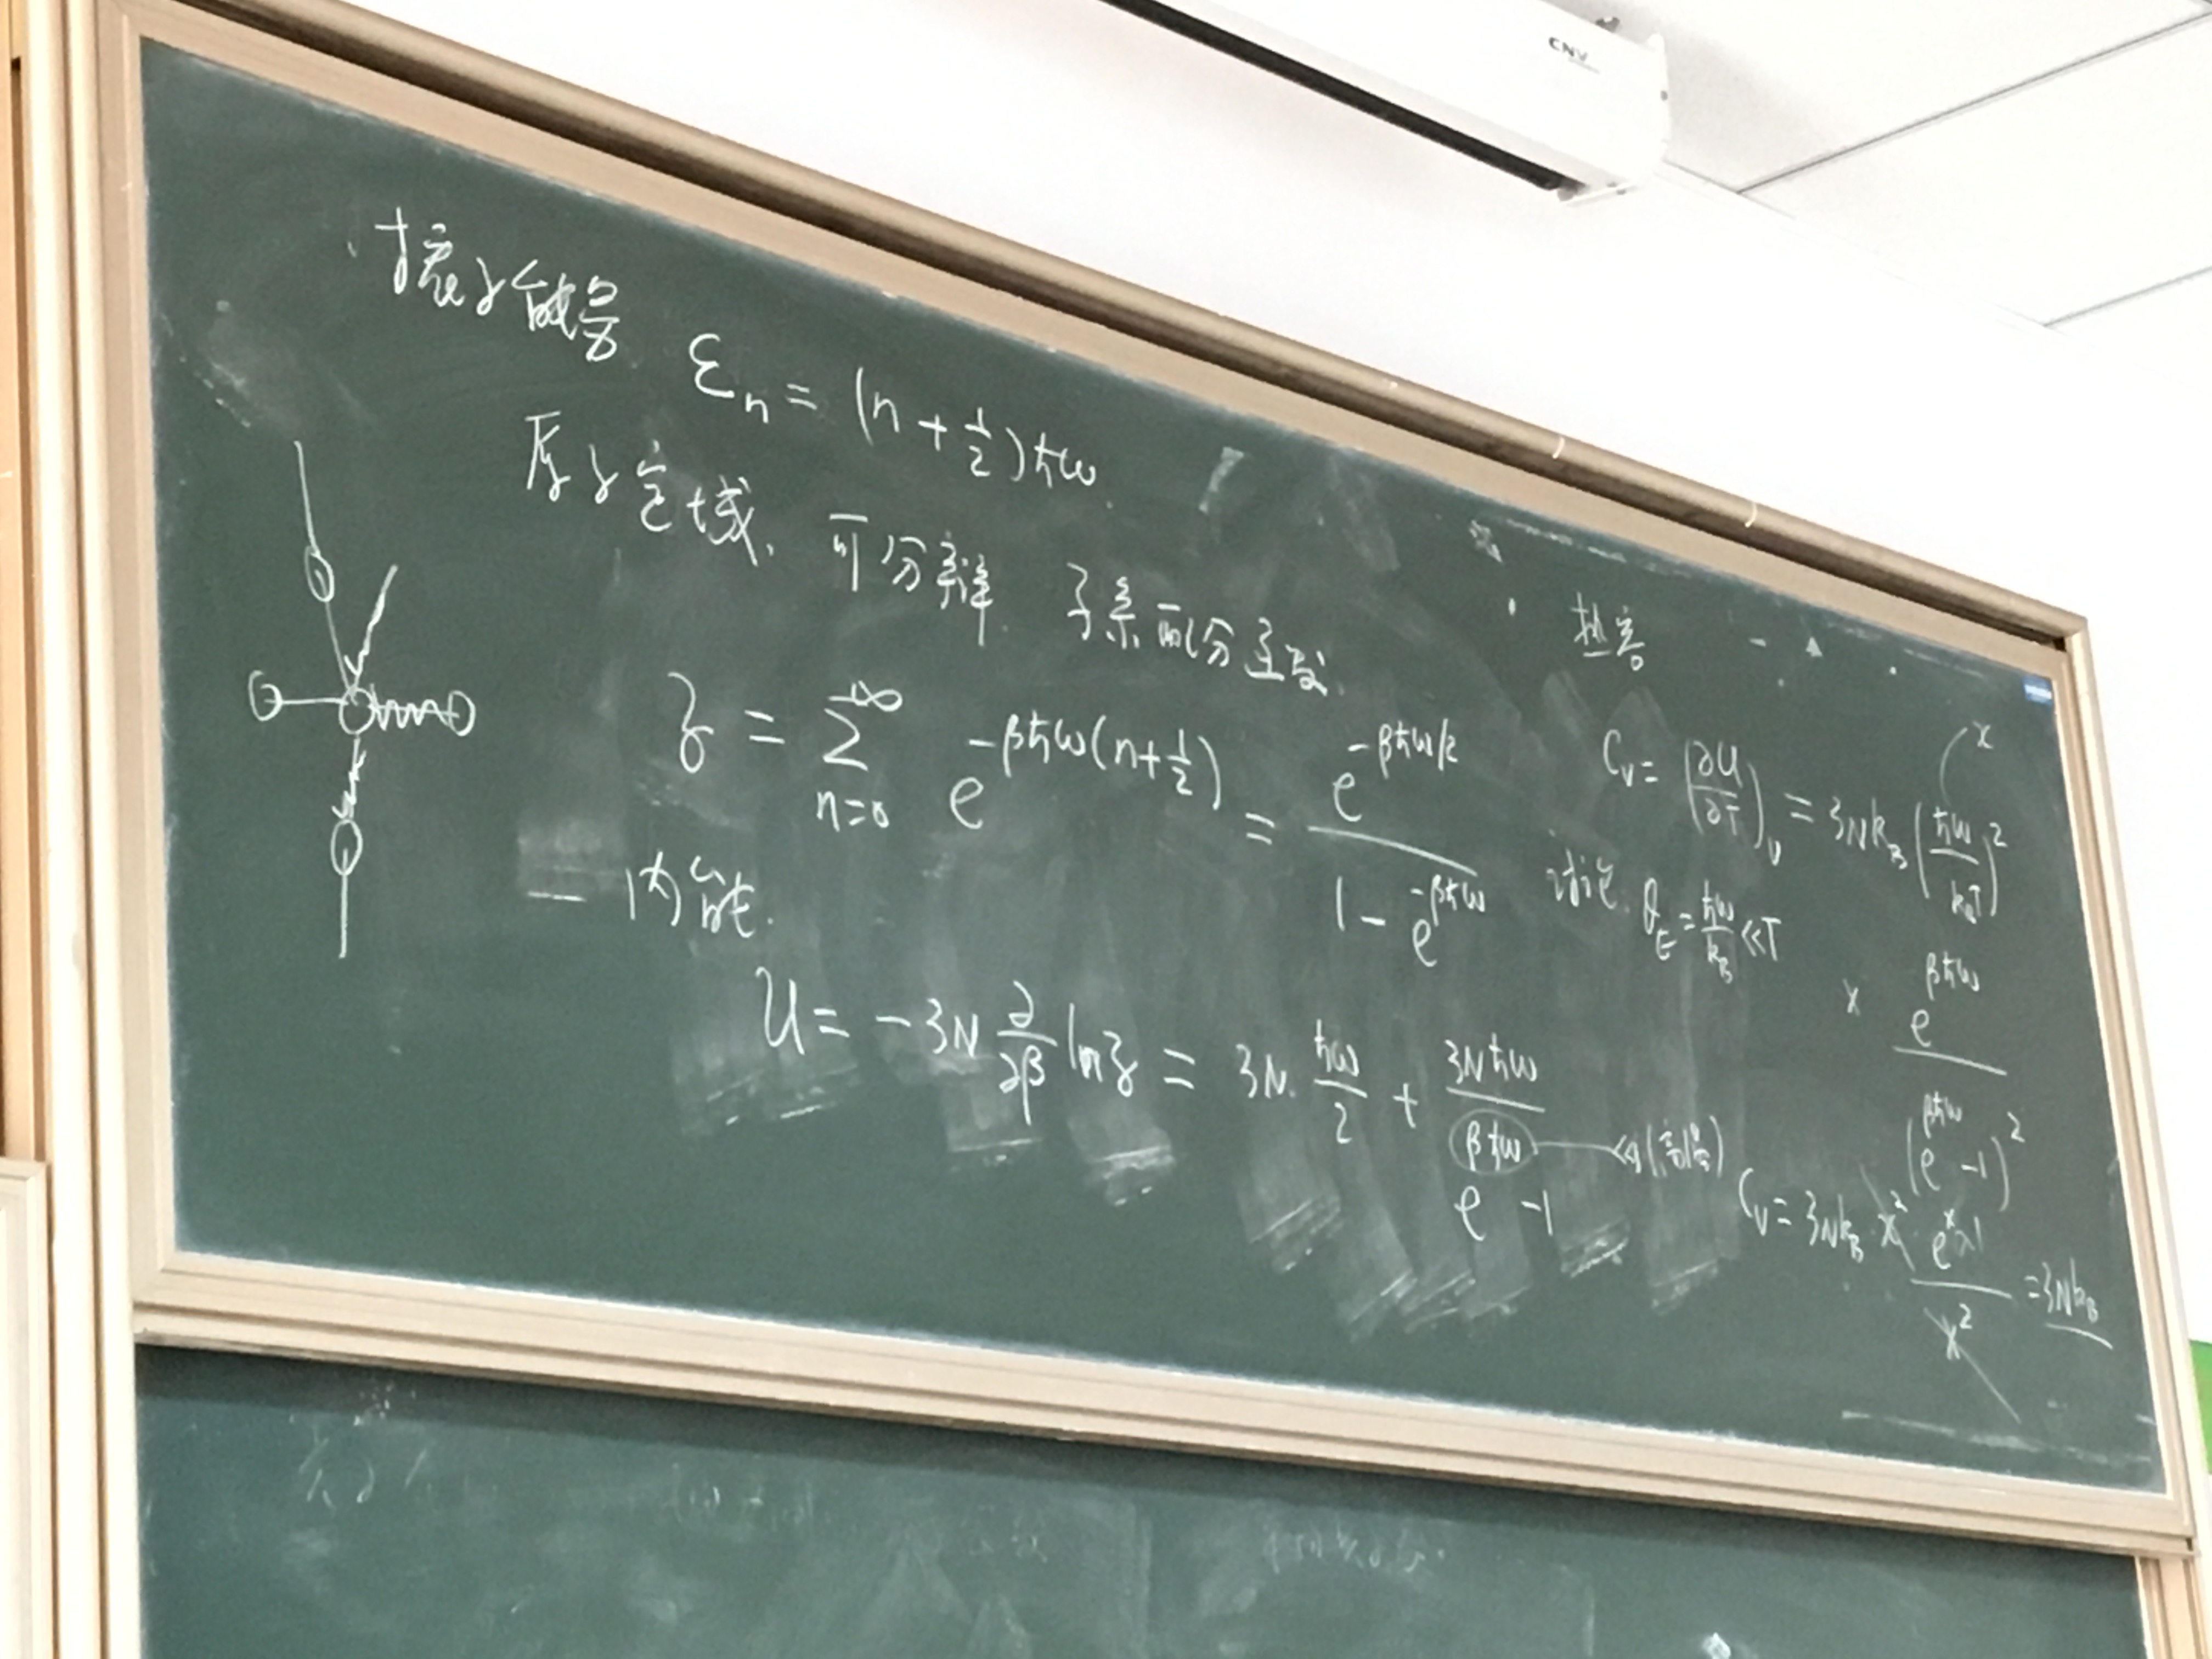 CNV
振子能量 εn = (n + 1/2)ħω
原子定域, 可分辨. 子系配分函数.
z = Σ_{n=0}^{+∞} e^{-βħω(n+1/2)} = e^{-βħω/2} / (1 - e^{-βħω})
一 内能.
U = -3N ∂/∂β ln z = 3N · ħω/2 + 3Nħω / (e^{βħω} - 1)
βħω ≪1 (高温)
热容
C_V = (∂U/∂T)_V = 3Nk_B (ħω/k_BT)^2
x
× e^{βħω} / (e^{βħω} - 1)^2
讨论. θ_E = ħω/k_B ≪ T
C_V = 3Nk_B · x^2 e^x≈1 / x^2 = 3Nk_B